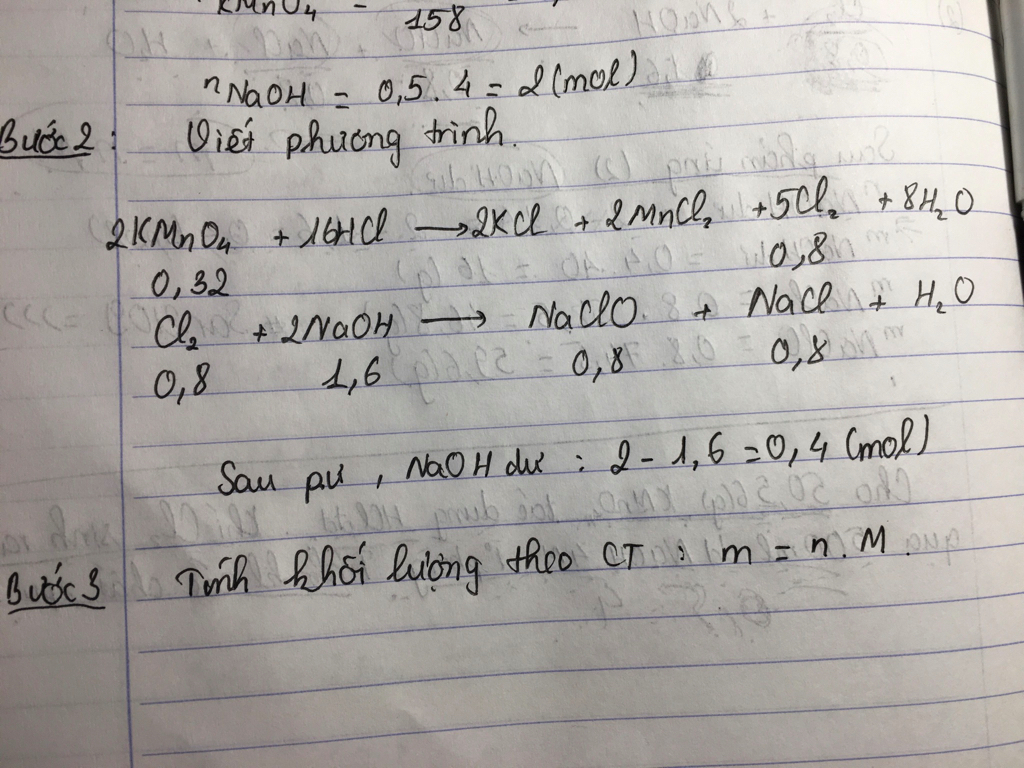 KMnO₄ =
158
nNaOH = 0,5.4 = 2(mol)
Bước 2: Viết phương trình.
2KMnO₄ + 16HCl → 2KCl + 2MnCl₂ + 5Cl₂ + 8H₂O
0,32 0,8
Cl₂ + 2NaOH → NaClO + NaCl + H₂O
0,8 1,6 0,8 0,8
Sau pư, NaOH dư : 2 - 1,6 = 0,4 (mol)
Bước 3 Tính khối lượng theo CT : m = n.M.